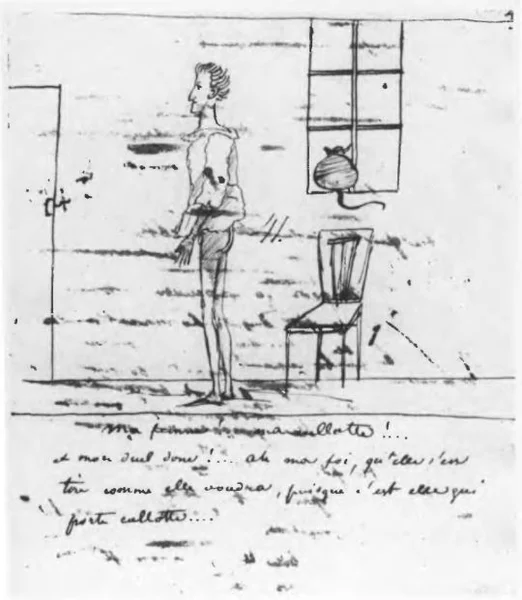 Ma femme a ma cullotte !...
et mon duel donc !... ah ma foi, qu'elle s'en
tire comme elle voudra, puisque c'est elle qui
porte cullotte....